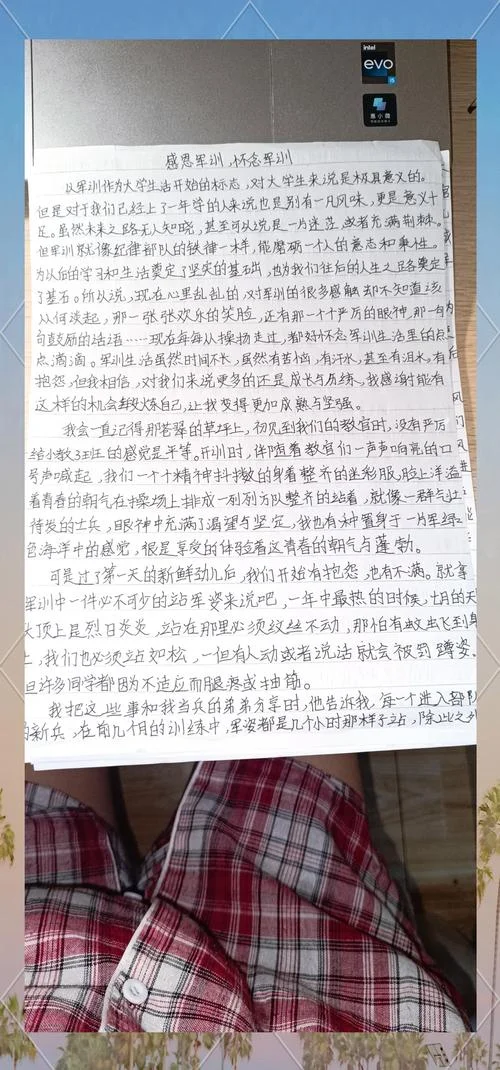 intel
evo
i5
惠小微
感恩军训,怀念军训
以军训作为大学生活开始的标志,对大学生来说是极具意义的。
但是对于我们已经上了一年学的人来说也是别有一凡风味,更是意义十
足。虽然未来之路无人知晓,甚至可以说是一片迷茫或者充满荆棘。
但军训就像纪律部队的铁律一样,能磨砺一个人的意志和秉性。
为以后的学习和生活奠定了坚实的基础,也为我们往后的人生之路奠定
了基石。所以说,现在心里乱乱的,对军训的很多感触却不知道该
从何谈起,那一张张欢乐的笑脸,还有那一个个严厉的眼神,那一句
句鼓励的话语……现在每每从操场走过,都好怀念军训生活里的点
点滴滴。军训生活虽然时间不长,虽然有苦恼,有汗水,甚至有泪水,有
抱怨,但我相信,对我们来说更多的还是成长与历练,我感谢能有
这样的机会锻炼自己,让我变得更加成熟与坚强。
我会一直记得那苍翠的草坪上,初见到我们的教官时,没有严厉
给小教3班的感觉是平等。开训时,伴随着教官们一声声响亮的口
号声喊起,我们一个个精神抖擞的身着整齐的迷彩服,脸上洋溢
着青春的朝气在操场上排成一列列方队整齐的站着,就像一群气壮
待发的士兵,眼神中充满了渴望与坚定,我也有种置身于一片军绿
色海洋中的感觉,很是享受的体验着这青春的朝气与蓬勃。
可是过了第一天的新鲜劲儿后,我们开始有抱怨,也有不满。就拿
军训中一件必不可少的站军姿来说吧,一年中最热的时候,七月的天
头顶上是烈日炎炎,站在那里必须纹丝不动,那怕有蚊虫飞到身
上,我们也必须站如松,一但有人动或者说话就会被罚蹲姿。
但许多同学都因为不适应而腿疼或抽筋。
我把这些事和我当兵的弟弟分享时,他告诉我,每一个进入部队
的新兵,在前几个月的训练中,军姿都是几个小时那样子站,除此之外